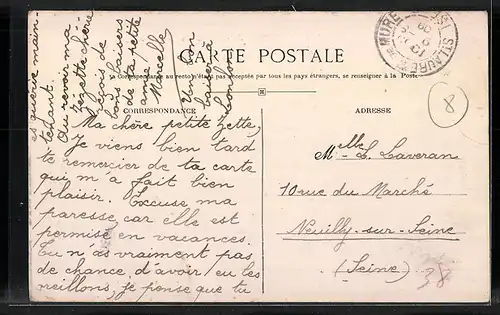 CARTE POSTALE
La Correspondance au recto n'est pas acceptée par tous les pays étrangers, se renseigner à la Poste
CORRESPONDANCE
Ma chère petite Zette,
Je viens bien tard
te remercier de ta carte
qui m'a fait bien
plaisir. Excuse ma
paresse, car elle est
permise en vacances.
Tu n'as vraiment pas
de chance d'avoir eu les
oreillons, je pense que tu
es guérie main-
tenant.
Au revoir ma
Zezette chérie
reçois de
bons baisers
de ta petite
amie
Marcelle
Un bon
baiser à
ADRESSE
Melle L. Laveran
10 rue du Marché
Neuilly-sur-Seine
(Seine)
8
38
MURE
ST LAURENT